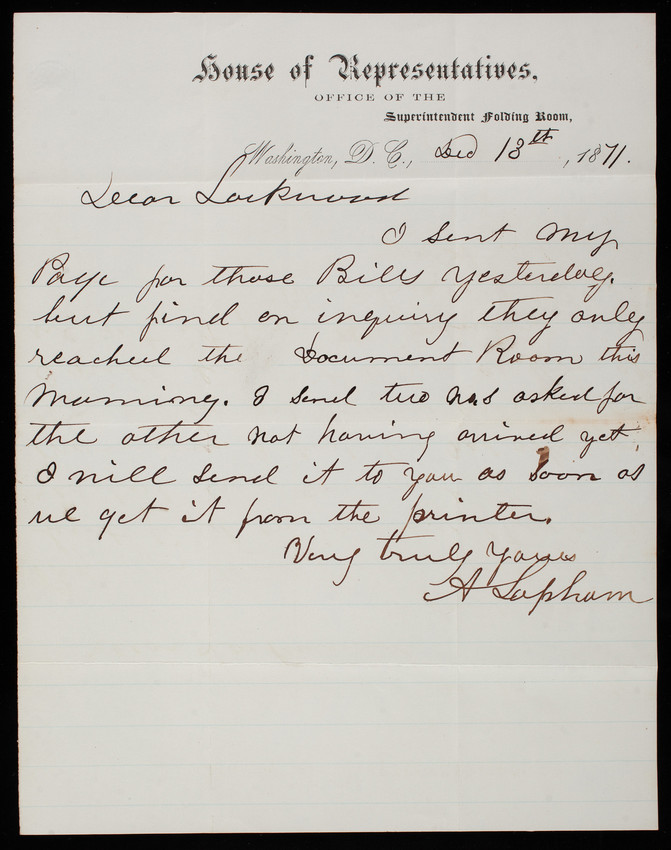 House of Representatives,
OFFICE OF THE
Superintendent Folding Room,
Washington, D. C., Dec 13th, 1871.
Dear Lockwood
I sent my
Page for those Bills yesterday.
but find on inquiry they only
reached the Document Room this
morning. I send two nos asked for
the other not having arrived yet.
I will send it to you as soon as
we get it from the printer.
Very truly yours
A Lapham